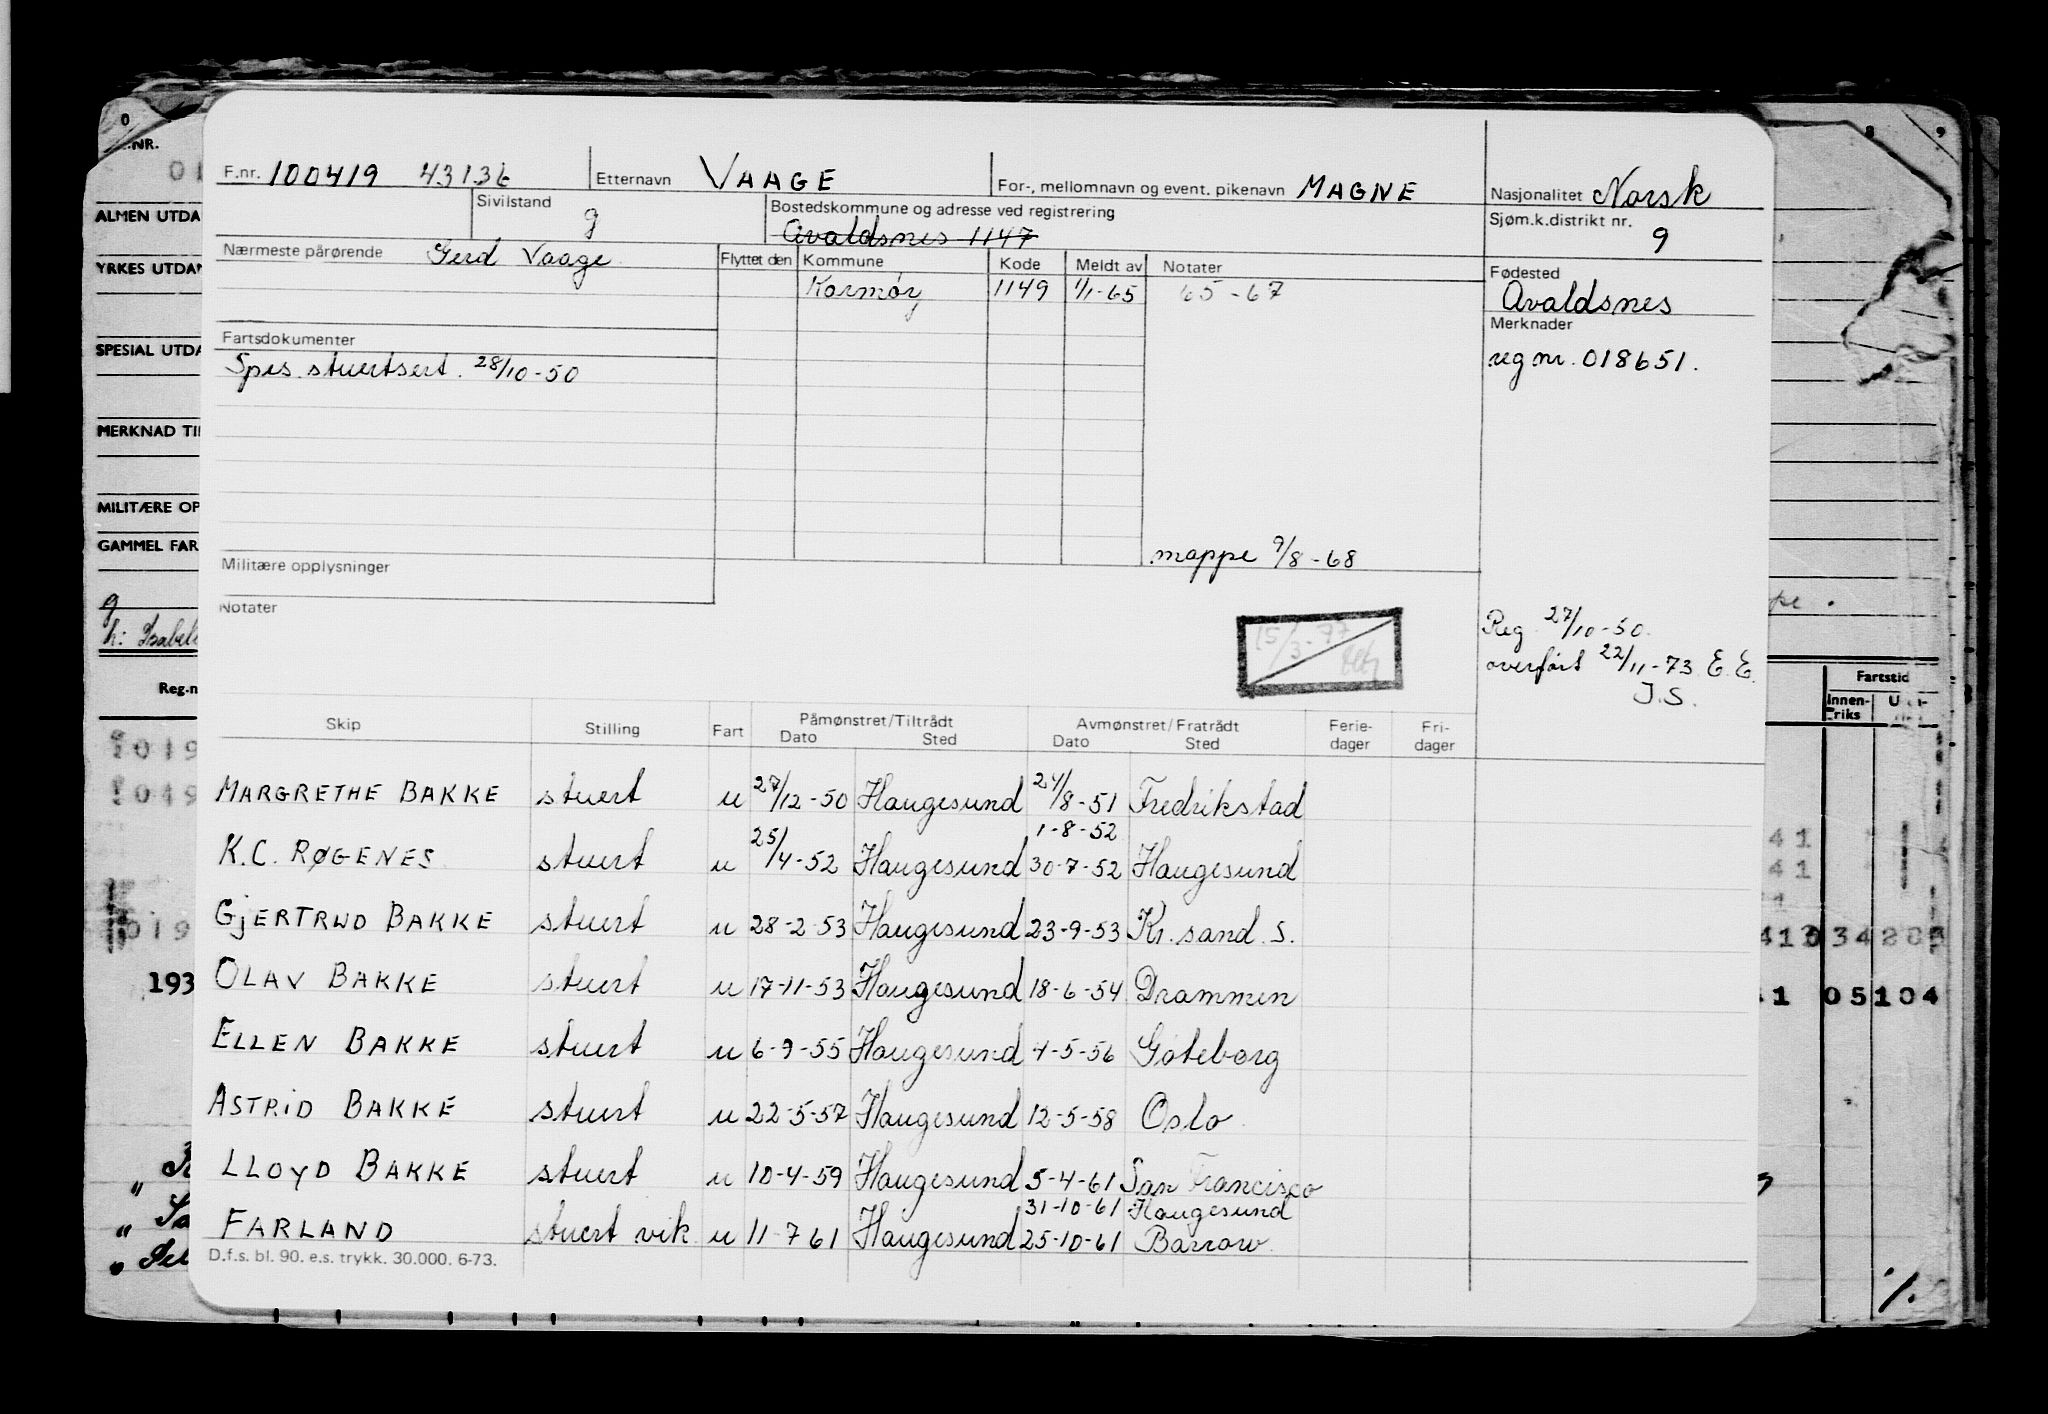 F.nr. 100419 43136 Etternavn VAAGE For-, mellomnavn og event. pikenavn MAGNE Nasjonalitet Norsk
Sivilstand g Bostedskommune og adresse ved registrering Avaldsnes 1147 Sjøm.k.distrikt nr. 9
Nærmeste pårørende Gerd Vaage Flyttet den Kommune Kode Meldt av Notater Fødested
Karmøy 1149 1/1-65 65-67 Avaldsnes
Fartsdokumenter Merknader
Spes. stuertsert. 28/10-50 reg nr. 018651.
mappe 9/8-68
Militære opplysninger
Notater
15/3-77
Reg 27/10-50.
overført 22/11-73 E.E.
J.S.
Skip Stilling Fart Påmønstret/Tiltrådt Dato Sted Avmønstret/Fratrådt Dato Sted Ferie-dager Fri-dager
MARGRETHE BAKKE stuert u 27/12-50 Haugesund 24/8-51 Fredrikstad
1-8-52
K.C. RØGENES stuert u 25/4-52 Haugesund 30-7-52 Haugesund
GJERTRUD BAKKE stuert u 28-2-53 Haugesund 23-9-53 Kr. sand. S.
OLAV BAKKE stuert u 17-11-53 Haugesund 18-6-54 Drammen
ELLEN BAKKE stuert u 6-9-55 Haugesund 4-5-56 Gøteborg
ASTRID BAKKE stuert u 22-5-57 Haugesund 12-5-58 Oslo
LLOYD BAKKE stuert u 10-4-59 Haugesund 5-4-61 San Francisco
31-10-61 Haugesund
FARLAND stuert vik. u 11-7 61 Haugesund 25-10-61 Barrow
D.f.s. bl. 90. e.s. trykk. 30.000. 6-73.
0
.NR.
ALMEN UTDA
YRKES UTDAN
SPESIAL UTDA
MERKNAD TI
MILITÆRE OP
GAMMEL FAR
g
h: Isabel
Reg.n
019
049
019
193
8 9
Fartstid
Innen-riks
41
41
41 034203
41 05104